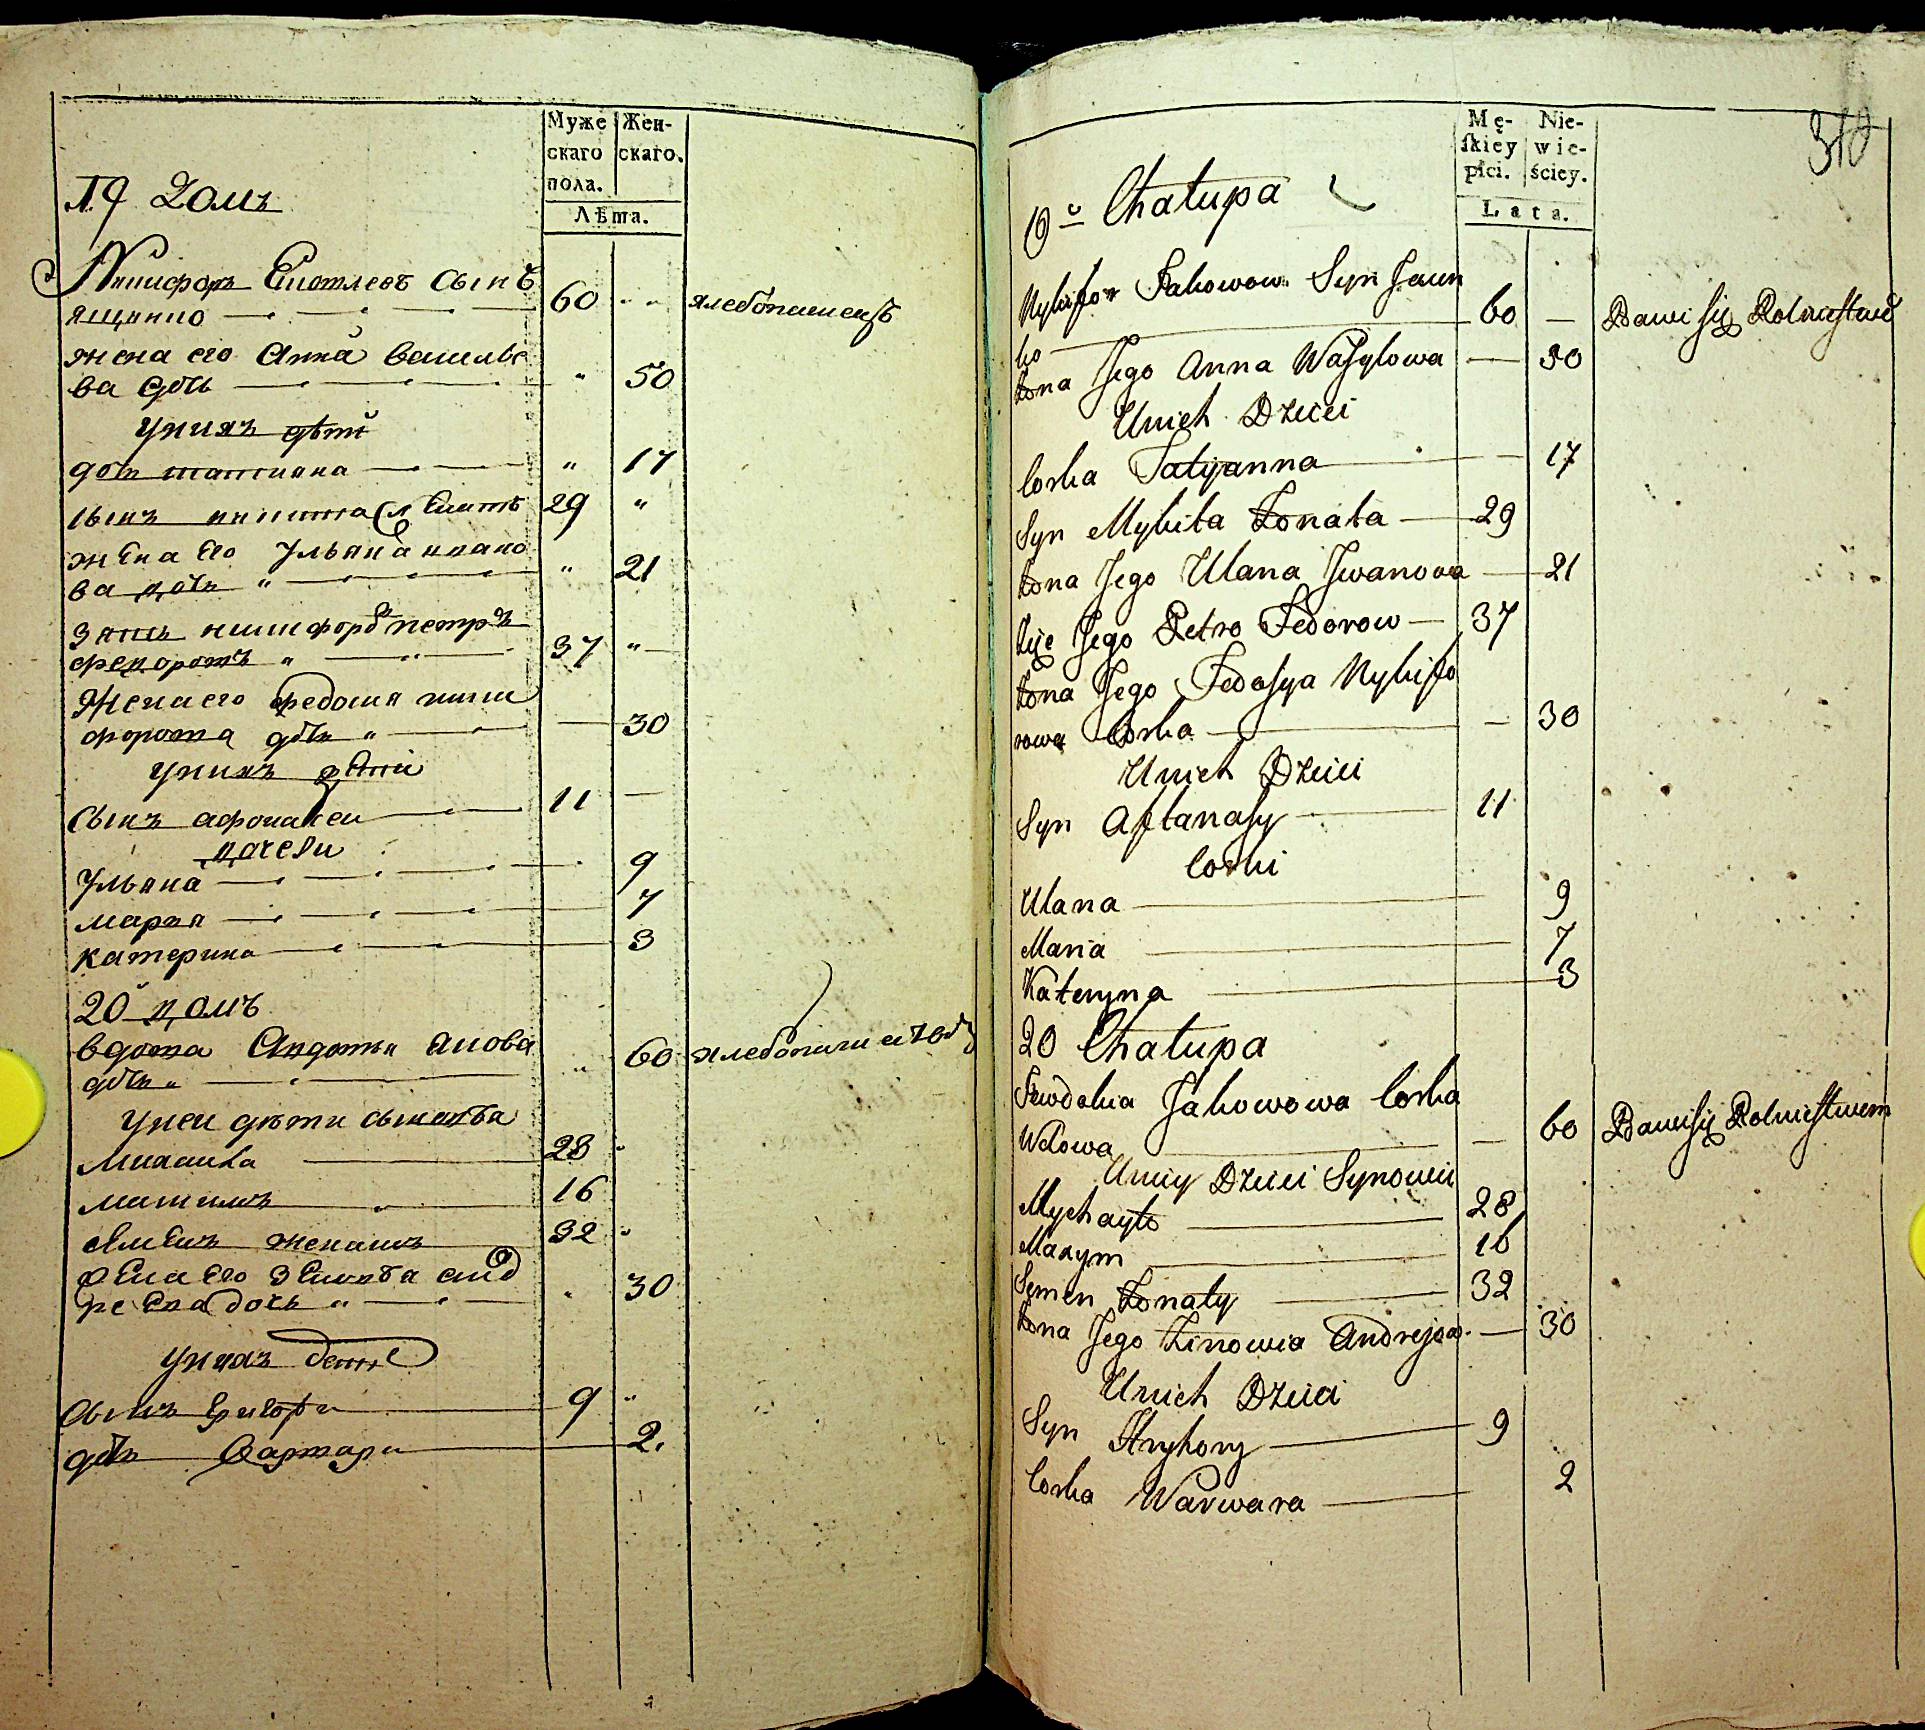 Муже Жен-
скаго скаго.
пола.
Лѣта.
19 Домъ
Никифоръ сынъ
ященко 60 хлебопашецъ
жена его Анна василье
ва дочь 50
у нихъ дѣти
дочь татиана 17
сынъ никита 29
жена его Ульяна ивано
ва дочь 21
зять никифоръ петръ
федоровъ 37
Жена его федосия ники
форова дочь 30
у нихъ дѣти
сынъ афонасеи 11
дочери
Ульяна 9
мария 7
катерина 3
20 домъ
вдова Авдотья
дочь 60
у неи дѣти сыновья
Михаила 28
максимъ 16
Семенъ женатъ 32
жена его Зеновия анд
реева дочь 30
у нихъ дети
сынъ григори 9
дочь Варвара 2.
Mę- Nie-
skiey wie-
płci. ściey.
Lata.
310
19 Chałupa
Nykifor Jakowow Syn Jaun
ko 60 — Bawi się Rolnictwē
żona Jego Anna Wasylowa — 50
U nich Dzieci
Corka Tatyanna 17
Syn Mykita Żonata 29
żona Jego Ulana Jwanowa 21
Jego Petro Fedorow 37
żona Jego Fedosya Nykifo
rowa Corka — 30
U nich Dzieci
Syn Aftanasy 11
Corki
Ulana 9
Maria 7
Kateryna 3
20 Chałupa
Jakowowa Corka
Wdowa — 60 Bawi się Rolnictwem
U niey Dzieci Synowie
Mychayło 28
Maxym 16
Semen Żonaty 32
żona Jego Zinowia Andrejow. — 30
U nich Dzieci
Syn Hryhory 9
Corka Warwara 2